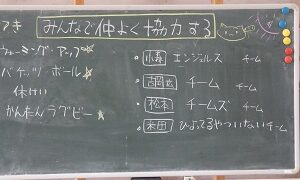 みんなで仲よく協力する
ウォーミングアップ
バチッツ ボール
休けい
かんたんラグビー
エンジェルス チーム
チーム チーム
松本 チームズ チーム
米田 ひよってるやついないチーム